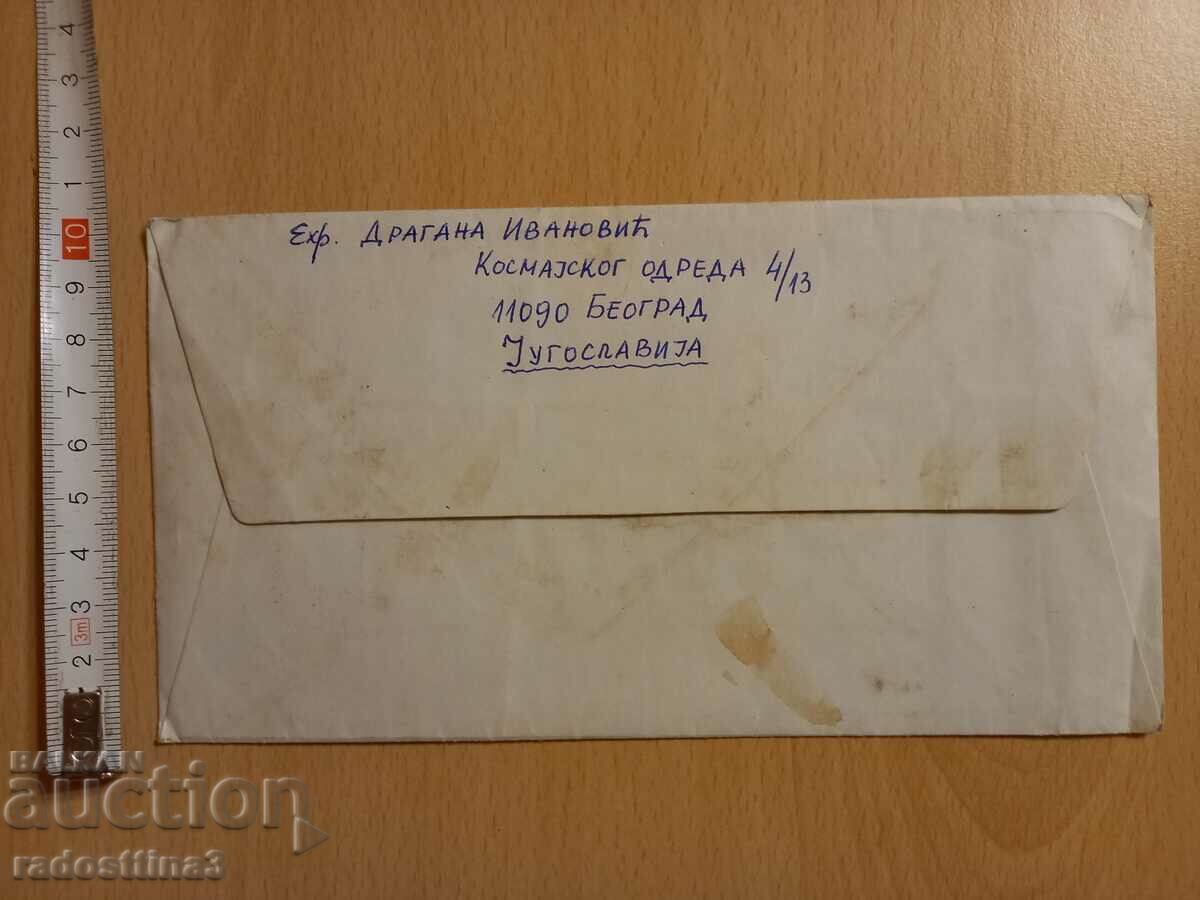 Exp. Драгана Ивановић
Космајског одреда 4/13
11090 Београд
Југославија
4
3
2
1
10
9
8
7
6
5
4
3
3m
2
BALKAN
auction
radosttina3